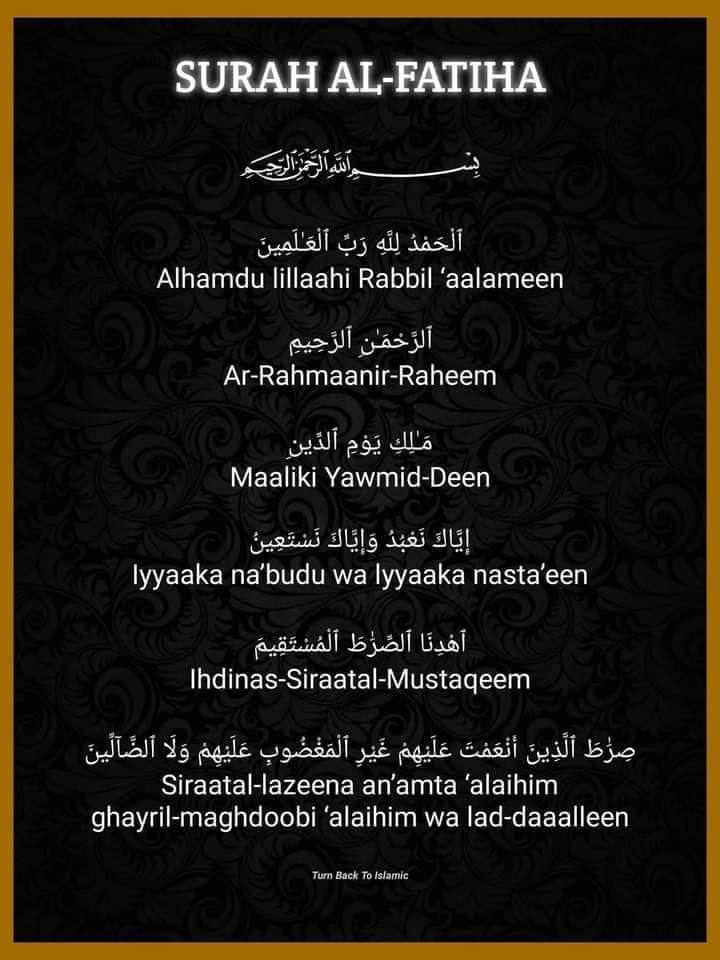 SURAH AL-FATIHA
بِسْمِ ٱللَّهِ ٱلرَّحْمَـٰنِ ٱلرَّحِيمِ
ٱلْحَمْدُ لِلَّهِ رَبِّ ٱلْعَـٰلَمِينَ
Alhamdu lillaahi Rabbil ‘aalameen
ٱلرَّحْمَـٰنِ ٱلرَّحِيمِ
Ar-Rahmaanir-Raheem
مَـٰلِكِ يَوْمِ ٱلدِّينِ
Maaliki Yawmid-Deen
إِيَّاكَ نَعْبُدُ وَإِيَّاكَ نَسْتَعِينُ
Iyyaaka na’budu wa Iyyaaka nasta’een
ٱهْدِنَا ٱلصِّرَٰطَ ٱلْمُسْتَقِيمَ
Ihdinas-Siraatal-Mustaqeem
صِرَٰطَ ٱلَّذِينَ أَنْعَمْتَ عَلَيْهِمْ غَيْرِ ٱلْمَغْضُوبِ عَلَيْهِمْ وَلَا ٱلضَّآلِّينَ
Siraatal-lazeena an’amta ‘alaihim
ghayril-maghdoobi ‘alaihim wa lad-daaalleen
Turn Back To Islamic